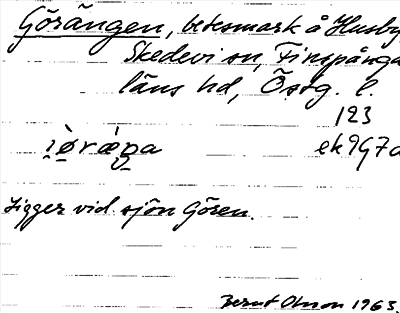 Görängen, betesmark å Husby
Skedevi sn, Finspånga
läns hd, Östg. l.
123
ek9G7d
Ligger vid sjön Gören.
Bernt Olsson 1963.